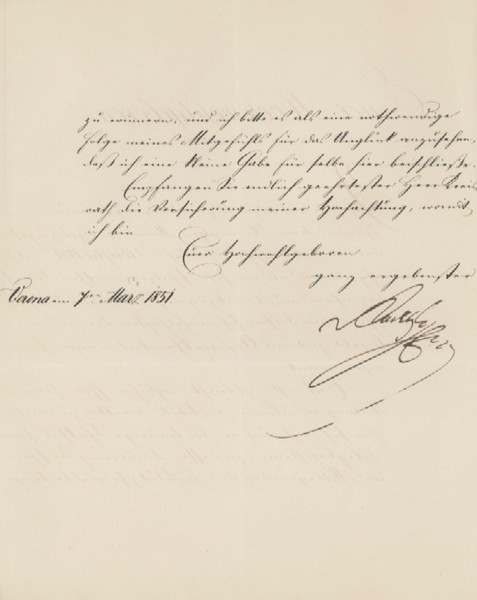 zu erinnern, und ich bitte es als eine nothwendige
Folge meines Mitgefühls für das Unglück anzusehen,
daß ich eine kleine Gabe für selbe hier beischließe.
Empfangen Sie endlich geehrtester Herr Kreis
rath die Versicherung meiner Hochachtung, womit
ich bin
Euer Hochwohlgeboren
ganz ergebenster
Verona am 7ten März 1851